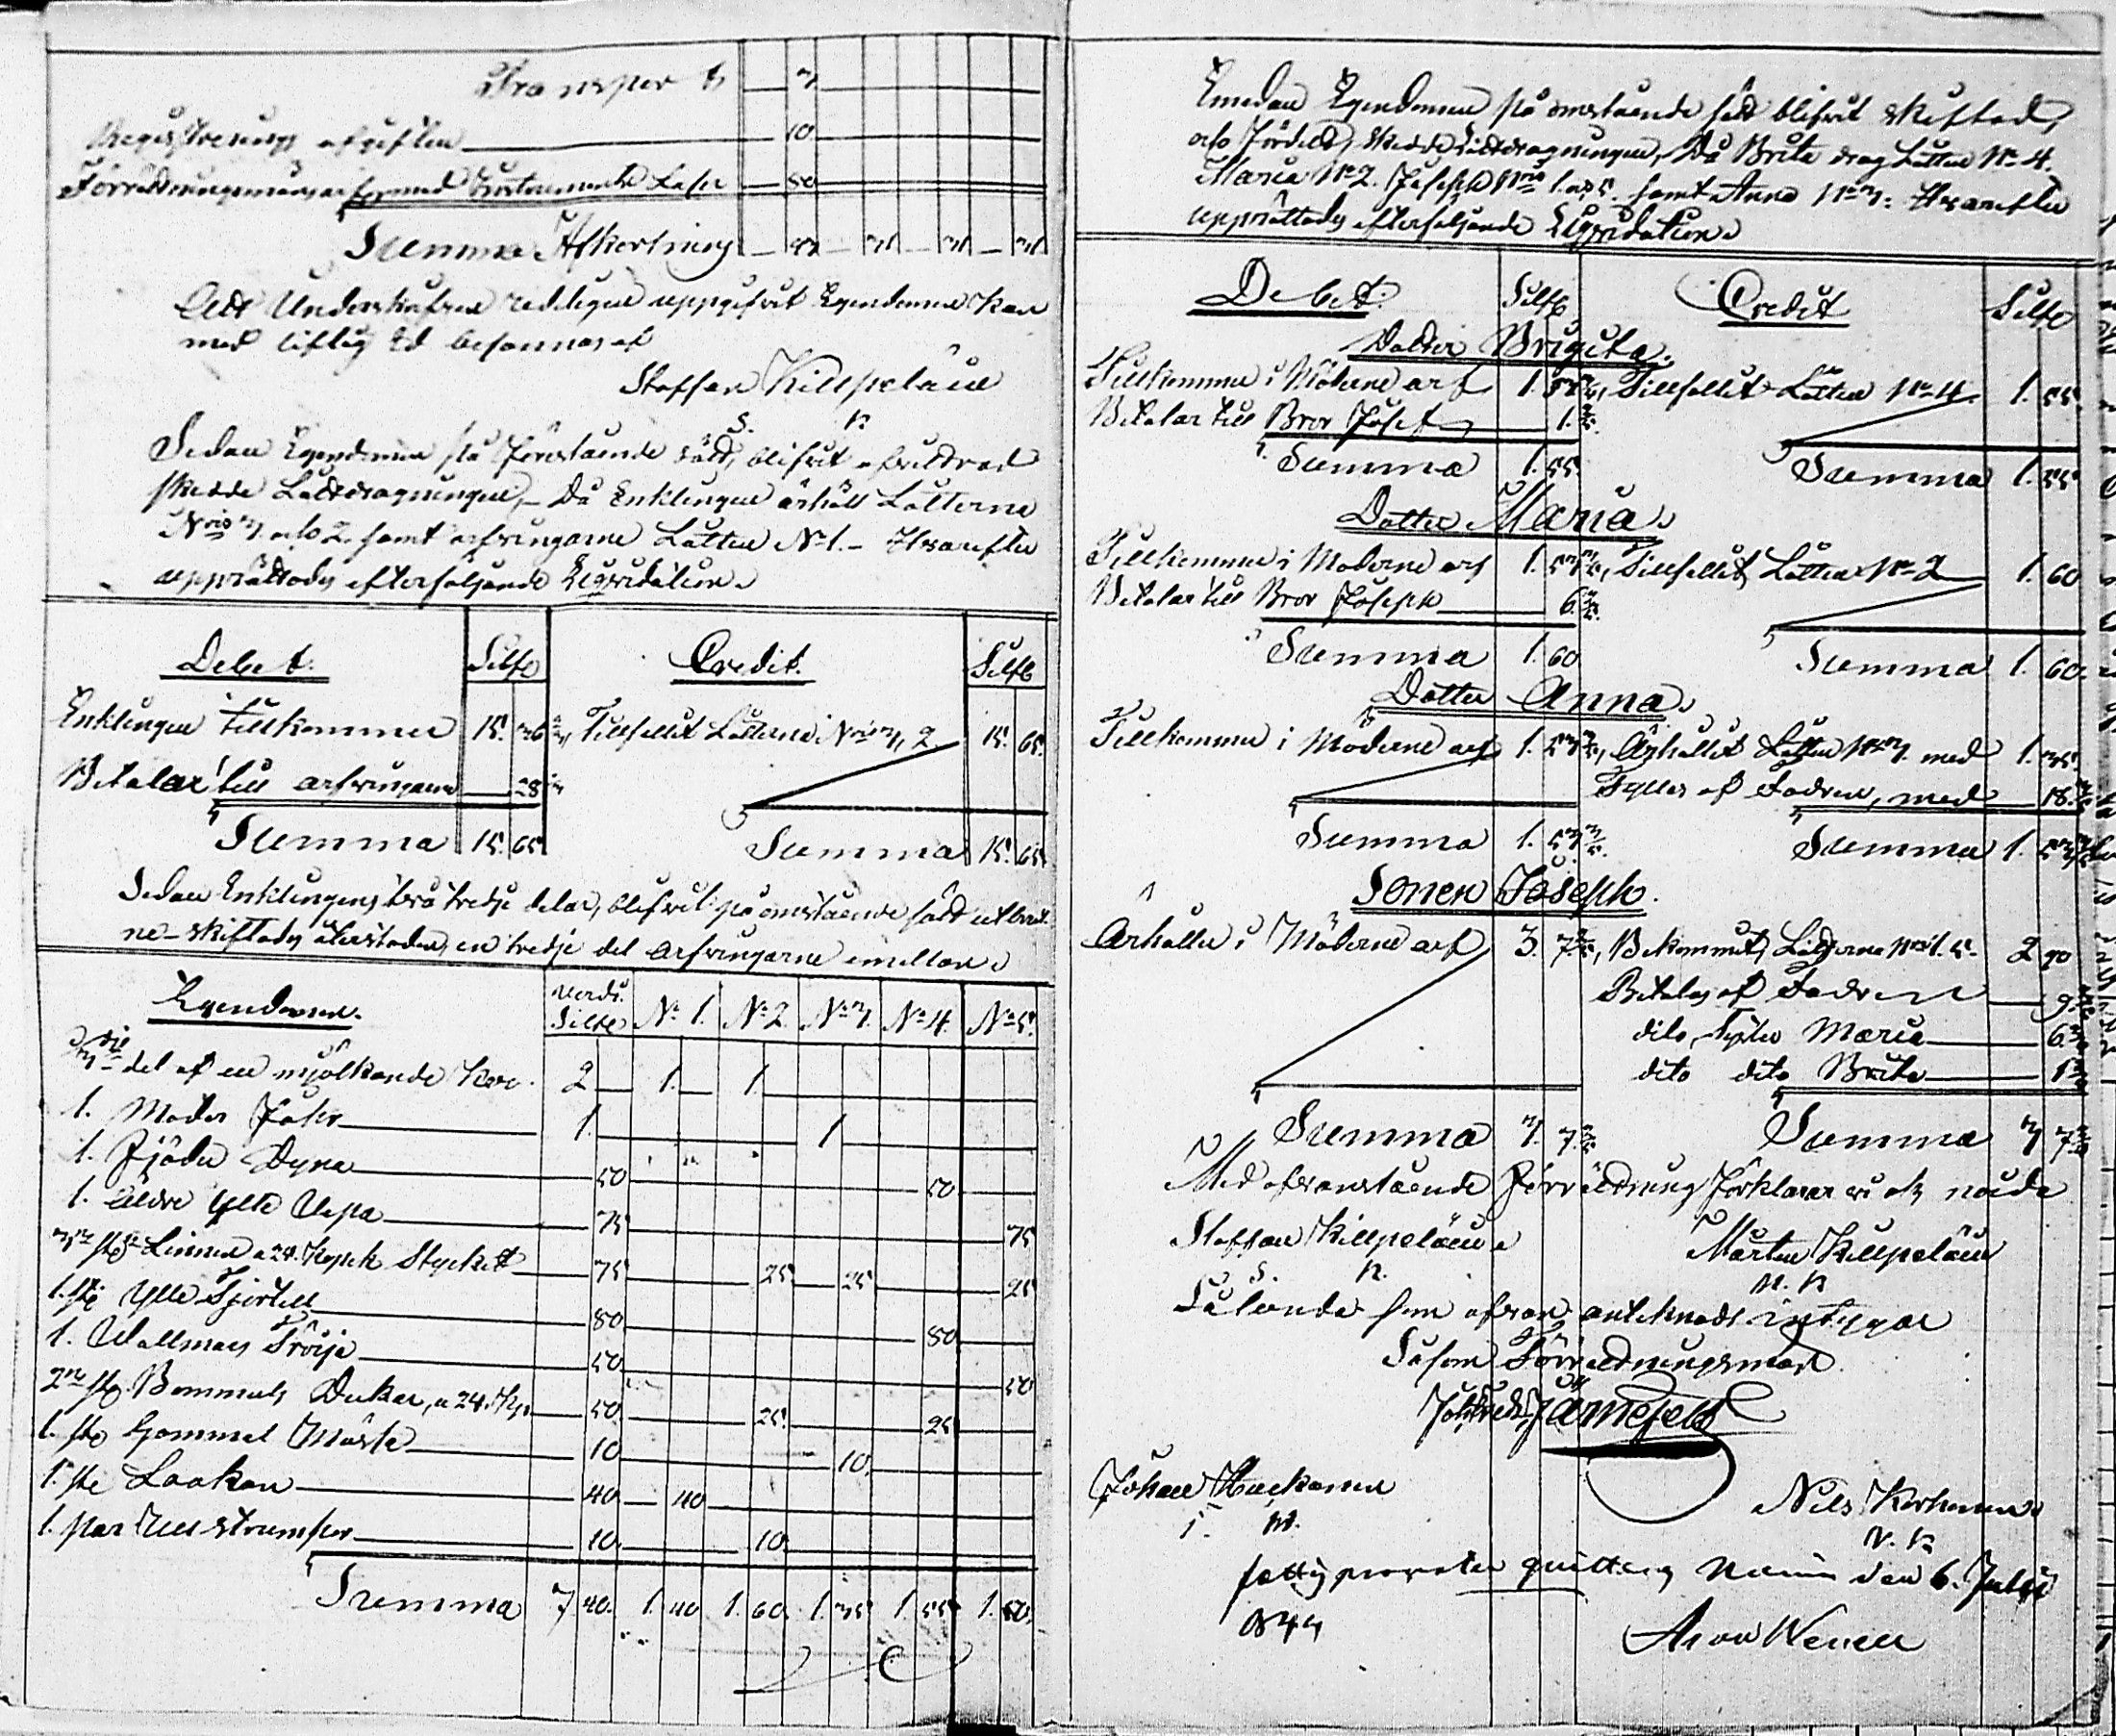 Transport 3.
Registrerings afgiften 10
Förrättningsmans arfvode med Instrumente Lösn 80
Summa Afkortning
Att Underskrefne redeligen uppgifvit Egendomen kan
med liflig Ed besannas af
Staffan Kilpeläin
S. K
Sedan Egendomen på förestående sätt, blifvit
skedde Lottdragningen, - Då Enklingen erhöll Lotterne
Nris 3. och 2. samt arfvingarne Lotten N 1. - Hvarefter
upprättades efterföljande Liquidation.
Debet. Silfr Credit. Silfr
Enklingen tillkommer 15. 36 Tillfallit Lotterne Nris 3, 2 15. 65.
Betalar till arfvingarne 28
Summa 15. 65. Summa 15. 65
Sedan Enklingens två tredje delar, blifvit på omstående sätt
ne- skiftades återstoden, en tredje del arfvingarne emellan.
Egendomen. Värde Silfr No 1. No 2. No 3. No 4. No 5.
del af en mjölkande Ko. 2 1. 1.
1. Moder 1. 1
1. Fjäder Dyna 50 50
1. äldre Ylle 75 75
3ne st Linnen a 24. Kopek Stycket 75 25 25 25
1. st Ylle Tjortell 80 80
1. Wallmars Tröija 50 50
2ne st. Bommuls Dukar, a 24. Kp. 50 25. 25
1. st Gammal Mössa 10 10.
1. st Laakan 40 40
1. par Ull strumpor 10. 10.
Summa 7 40. 1. 40 1. 60. 1. 35 1. 55 1. 50.
Emedan Egendomen på omstående sätt blifvit skiftad,
och fördeld, skedde Lottdragningen, Då Brita drog Lotten No 4.
Maria No 2. Joseph Nris 1. och 5. samt Anna No 3: Hvarefter
upprättades efterföljande Liquidation.
Debet. Silfr Credit Silfr
Dotter Brigita.
Tillkommer i Möderne arf 1. 53 Tillfallit Lotten No 4. 1. 55.
Betalar till Bror Josef 1.
Summa 1. 55. Summa 1. 55
Dotter Maria.
Tillkommer i Möderne arf 1. 53 Tillfallit Lotten No 2 1. 60
Betalar till Bror Joseph 6.
Summa 1. 60 Summa 1. 60.
Dotter Anna.
Tillkommer i Möderne arf 1. 53 Erhållit Lotten No 3. med 1. 35.
Fylles af Fadren, med 18.
Summa 1. 53 Summa 1. 53
Sonen Joseph.
Erhåller i Möderne arf 3. 7 Bekommit Lotterne Nris 1. 5. 2 90
Betalas af Fadren 9
dito, Syster Maria 6
dito dito Brita 1
Summa 3. 7 Summa 3 7
Med ofvanstående Förrättning förklarar vi oss nöjde
Staffan Kilpeläin Mårten Kilpeläin
S. K. M. K
Således som ofvan antecknadt intygar
Såsom Förrättningsman
Järnefelt
Johan Huckanen Nils Korhonen
J. H. N. K
fattigprocenten quitteras den 6. Julii
1844
Aron Wenell